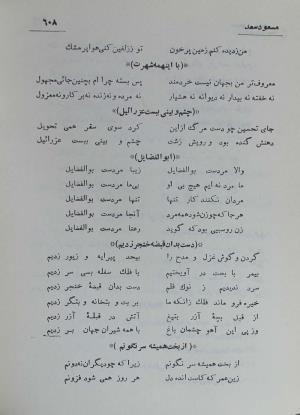 مسعود سعد
٦٠٨
من ز دیده کنم زمین پر خون تو ز زلفین کنی هوا پر مشک
*(با اینهمه شهرت)*
معروف‌تر من بجهان نیست خردمند پس بسته چرا ام بچنین جائی مجهول
نه خفته نه بیدار نه دیوانه نه هشیار نه مرده و نه زنده نه بر کار و نه معزول
*(چشم و بینی ببست عزرائیل)*
جای تحسین چو دست مرگ از این کرد سوی سفر همی تحویل
دهنش گنده بود و رویش زشت چشم و بینی ببست عزرائیل
*(ابوالفضایل)*
والا مردست بوالفضایل زیبا مردست بوالفضایل
ما مرد نه ایم هیچ بی او بی‌ما مردست بوالفضایل
مردان نکنند کار تنها تنها مردست بوالفضایل
هرجا که چو زن شود همه مرد آنجا مردست بوالفضایل
زن روسبی بود که گوید رعنا مردست بوالفضایل
*(دست بدان قبضه خنجر زدیم)*
گردن و گوش غزل و مدح را بیحد پیرایه و زیور زدیم
بیمر با بخت در آویختیم با فلك سفله بسی سر زدیم
سرد ندیدیم ز نوک قلم دست بدان قبضهٔ خنجر زدیم
خیره فرو ماند فلك زانکه ما بر بت و بتخانه و بتگر زدیم
از قبل بچهٔ آزر بتیغ آتش در قبلهٔ آزر زدیم
وز پی این آهو چشمان باغ با همه شیران جهان بر زدیم
*(از بخت همیشه سرنگونم)*
از بخت همیشه سر نگونم زیرا که چو دیگران نه دونم
زین عمر که کاست انده دل هر روز همی شود فزونم